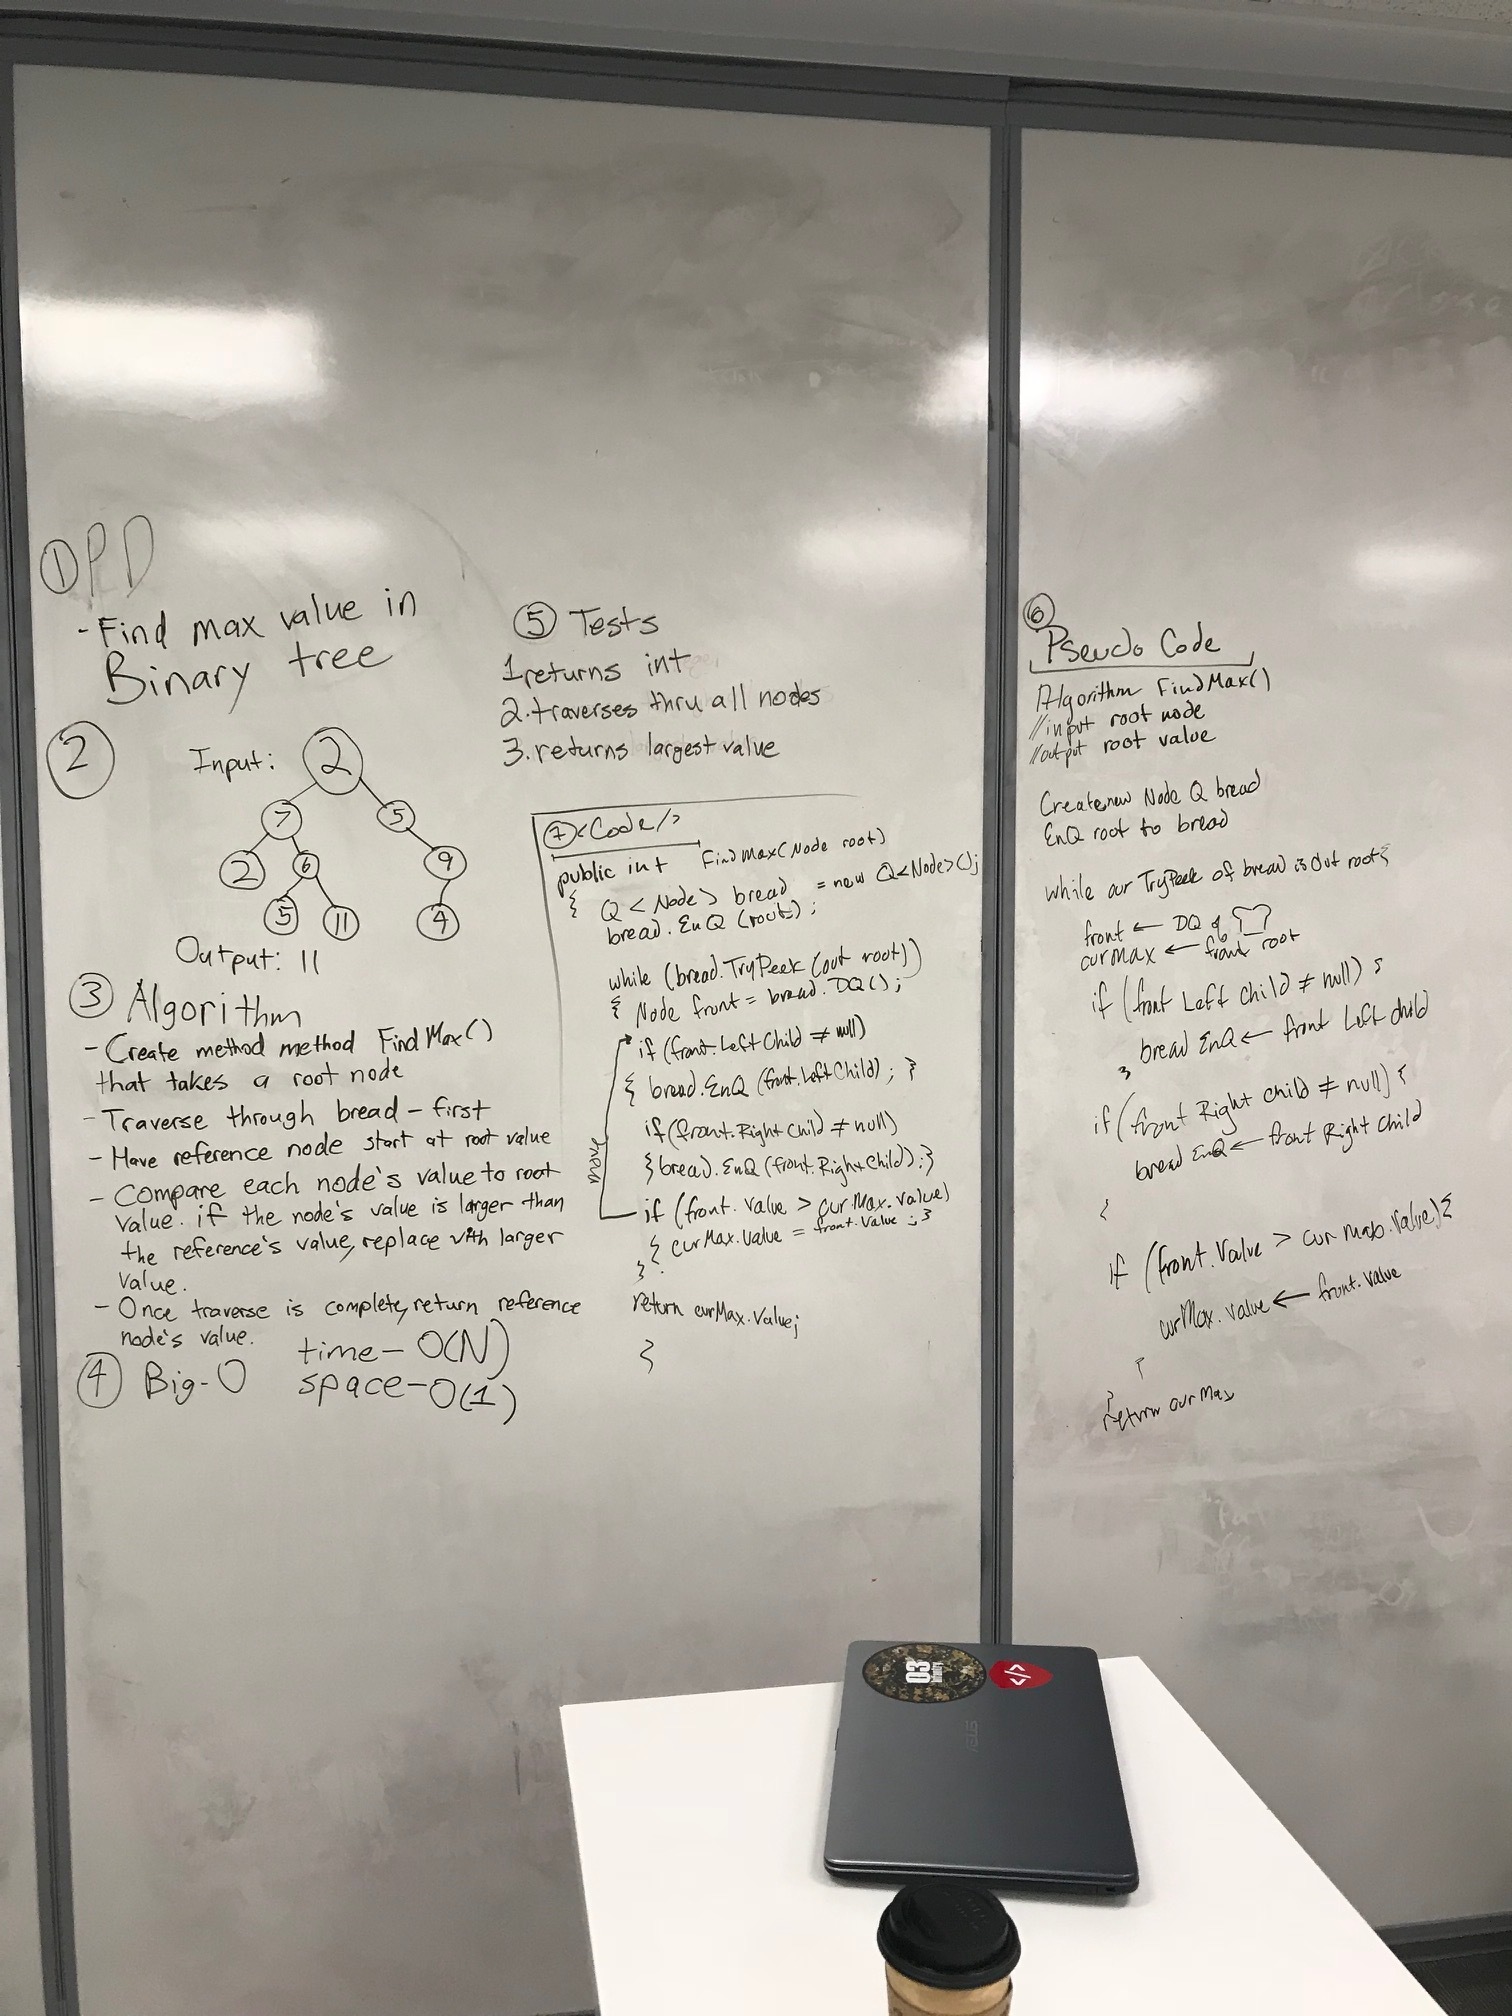 ① PD
- Find max value in
Binary tree
②
Input:
2
7 5
2 6 9
5 11 4
Output: 11
③ Algorithm
- Create method method FindMax()
that takes a root node
- Traverse through bread-first
- Have reference node start at root value
- Compare each node's value to root
value. if the node's value is larger than
the reference's value, replace with larger
value.
- Once traverse is complete, return reference
node's value.
④ Big-O
time- O(N)
space- O(1)
⑤ Tests
1 returns int
2. traverses thru all nodes
3. returns largest value
⑦ <Code/>
public int FindMax(Node root)
{ Q<Node> bread = new Q<Node>();
bread.EnQ(root);
while (bread.TryPeek(out root))
{ Node front = bread.DQ();
if (front.LeftChild ≠ null)
{ bread.EnQ(front.LeftChild); }
if(front.RightChild ≠ null)
{bread.EnQ(front.RightChild);}
move
if (front.Value > curMax.value)
{ curMax.Value = front.Value ; }
}
return curMax.Value;
}
⑥
Pseudo Code
Algorithm FindMax()
//input root node
//output root value
Create new Node Q bread
EnQ root to bread
while our TryPeek of bread is out root{
front ← DQ of
curMax ← front root
if (front Left Child ≠ null) {
bread EnQ ← front Left child
}
if (front Right child ≠ null) {
bread EnQ ← front Right Child
}
if (front.Value > curMax.Value){
curMax.Value ← front.Value
}
}
return curMax
03
</>
ASUS